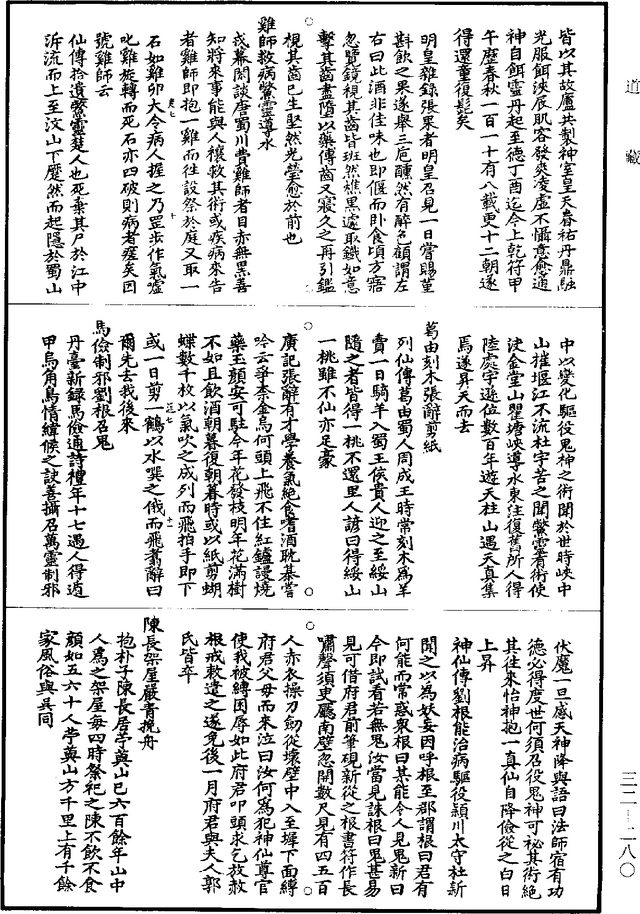 道藏
皆以其故廬共製神室皇天眷祐丹鼎融
光服餌浹辰肌客發爽凌虛不懾意愈通
神自餌靈丹起至德丁酉迄今上乾符甲
午歷春秋一百一十有八載更十二朝遂
得還童復髭矣
明皇雜錄張果者明皇召見一日嘗賜堇
斟飲之果遂舉三巵醺然有醉色顧謂左
右曰此酒非佳味也即偃而卧食頃方寤
忽覽鏡視其齒皆班然樵黑遽取鐵如意
擊其齒盡墮以藥傅齒又寢久之再引鑑
視其齒已生堅然光瑩愈於前也
雞師救病鱉靈導水
戎幕閑談唐蜀川費雞師者目赤無黑善
知將來事能與人禳救其術或疾病來告
者雞師即抱一雞而往設祭於庭又取一
石如雞卵大令病人握之乃罡步作氣噓
叱雞旋轉而死石亦四破則病者瘥矣因
號雞師云
仙傳拾遺鱉靈楚人也死棄其尸於江中
泝流而上至汶山下蹷然而起隱於蜀山
中以變化驅役鬼神之術聞於世時峽中
山摧堰江不流杜宇苦之聞鱉靈有術使
决金堂山瞿塘峽導水東注復舊所人得
陸處宇遜位數百年遊天柱山遇天真集
焉遂昇天而去
葛由刻木張辭剪紙
列仙傳葛由蜀人周成王時常刻木為羊
賣一日騎羊入蜀王侯貴人迎之至綏山
隨之者皆得一桃不還里人諺曰得綏山
一桃雖不仙亦足豪
廣記張辭有才學養氣絕食嗜酒耽棊嘗
吟云爭柰金烏何頭上飛不住紅鑪謾燒
藥玉顏安可駐今年花發枝明年花滿樹
不如且飲酒朝暮復朝暮時或以紙剪蝴
蝶數千枚以氣吹之成列而飛拍手即下
或一日剪一鶴以水噀之俄而飛翥辭曰
爾先去我後來
馬儉制邪劉根召鬼
丹臺新錄馬儉通詩禮年十七遇人得遁
甲烏角鳥情緯候之訣善攝召萬靈制邪
伏魔一旦感天神降與語曰法師宿有功
德必得度世何須召役鬼神可祕其術絕
其往來怡神抱一真仙自降儉從之白日
上昇
神仙傳劉根能治病驅役潁川太守杜新
聞之以為妖妄因呼根至郡謂根曰君有
何能而常惑衆根曰某能令人見鬼新曰
今即試看若無鬼汝當見誅根曰鬼甚易
見可借府君前筆硯新從之根書符作長
嘯聲須臾廳南壁忽開數尺見有四五百
人赤衣操刀劒從壞壁中入至墀下面縛
府君父毋而來泣曰汝何為犯神仙尊官
使我被縛困辱如此府君叩頭求乞放赦
根戒敕遣之遂免後一月府君與夫人郭
氏皆卒
陳長架屋嚴青挽舟
抱朴子陳長居苧薁山巳六百餘年山中
人為之架屋每四時祭祀之陳不飲不食
顏如五六十人苧薁山方千里上有千餘
家風俗與吳同
三二-二八〇